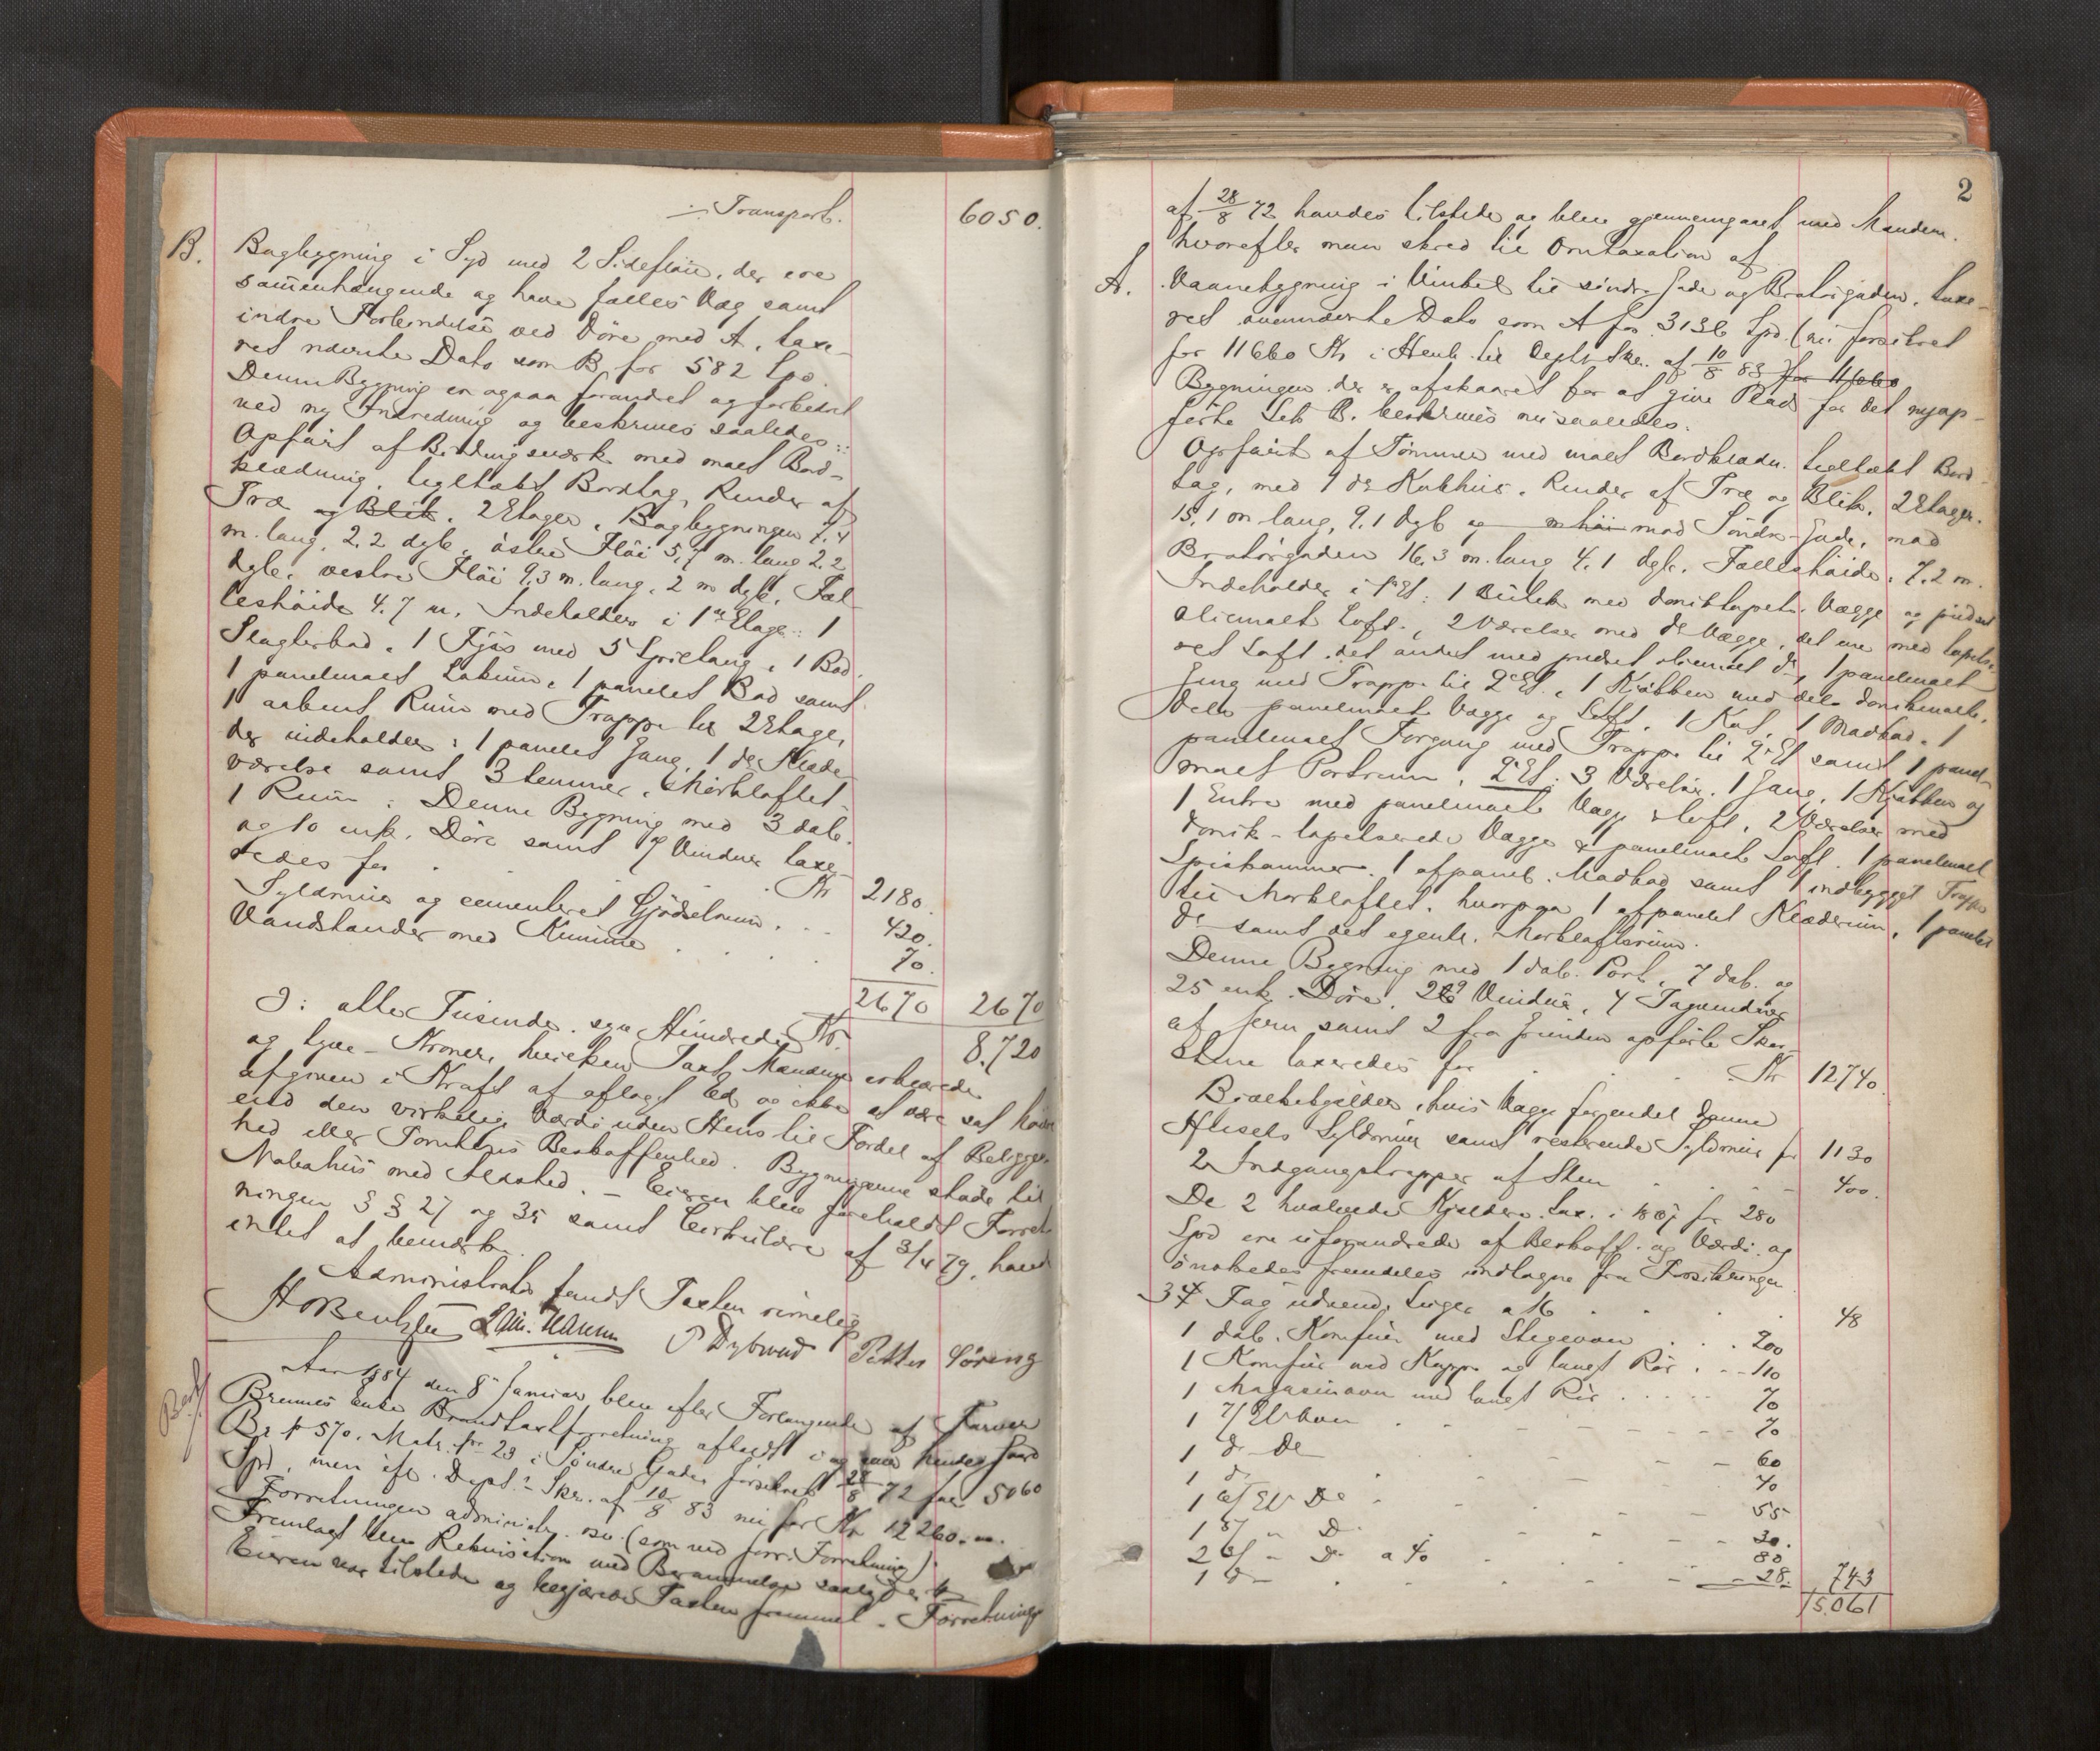 ÷ Transport. 6050.
B. Bagbygning i Syd med 2 Sidefløie, der ere
sammenhængende og have fælles Væg samt
indre Forbindelse ved Døre med A, taxe-
ret nævnte Dato som B for 582 Spd.
Denne Bygning er ogsaa forandret og forbedret
ved ny Indredning og beskrives saaledes:
Opført af Bindingsværk med malt Bord-
klædning, tegltækt Bordtag, Render af
Træ og Blik, 2 Etager, Bagbygningen 7.4
m. lang, 2.2 dyb, østre Fløi 5,7 m. lang 2.2
dyb, vestre Fløi 9.3 m. lang, 2 m dyb, Fæl-
leshøide 4.7 m. Indeholder i 1ste Etage: 1
Slagterbod, 1 Fjøs med 5 Spiltaug, 1 Bod,
1 panelmalt Lokum, 1 panelet Bod samt
1 aabent Rum med Trappe til 2 Etage,
der indeholder: 1 panelet Gang, 1 do Klæde-
værelse samt 3 Lemmer, Mørkloftet
1 Rum. Denne Bygning med 3 dob.
og 10 enk. Døre samt 7 Vinduer taxe-
redes for Kr 2180.
Syldmur og cementeret Gjødselrum 420.
Vandstander med Kumme 70.
2670 2670
Kr. 8.720
ɔ: otte Tusinde syv Hundrede
og tyve Kroner, hvilken Taxt Mændene erklærede
afgiven i Kraft af aflagt Ed og ikke at være sat høiere
end den virkelige Værdi uden Hens. til Fordel af Beliggen-
hed eller Tomtens Beskaffenhed. Bygningerne stode til
Nabohus med Ildsted. – Eieren blev foreholdt Forret-
ningen §§ 27 og 35 samt Cirkulære af 3/4 79, havde
intet at bemærke.
Administrator fandt Taxten rimelig
P Dybwad Petter Søring
Aar 1884 den 8de Januar blev efter Forlangende af Farver
Brunes Enke Brandtaxtforretning afholdt i og over hendes Gaard
Br № 570, Matr. № 23 i Søndre Gade, forsikret 28/8 72 for 5060
Spd, men efter Dept.s Skr. af 10/8 83 nu for Kr 12260.
Forretningen administ. osv. (som ved forr. Forretning).
Fremlagt blev Rekvisition med Berammelse saalydende
Eieren var tilstede og begjærede Taxten fremmet. Forretningen
2
af 28/8 72 havdes tilstede og blev gjennemgaaet med Mændene.
hvorefter man skred til Omtaxation af
A. Vaanebygning i Vinkel til søndre Gade og Bratørgaden, taxe-
ret ovennævnte Dato som A for 3136 Spd. (nu forsikret
for 11660 Kr i Henh. til Depts Skr. af 10/8 83 for 11660
Bygningen der er afskaaret for at give Plads for det nyop-
førte Litr B. beskrives nu saaledes:
Opført af Tømmer med malt Bordklædn. tegltækt Bord-
tag, med 1 do Kubhus, Render af Træ og Blik, 2 Etager,
15,1 m lang, 9.1 dyb og m høi mod Søndre Gade, mod
Bratørgaden 16,3 m. lang 4.1 dyb, Fælleshøide 7.2 m.
Indeholder i 1ste Et: 1 Butik med donktapets. Vægge og pudset
oliemalt Loft, 2 Værelser med do Vægge, det ene med tapetse-
ret Loft det andet med pudset oliemalt do, 1 panelmalt
Gang med Trappe til 2den Et, 1 Kjøkken med dels donkmalte,
dels panelmalte Vægge og Loft, 1 Kot, 1 Madbod, 1
panelmalt Forgang med Trappe til 2den Et samt 1 panel-
malt Portrum, 2den Et: 3 Værelser, 1 Gang, 1 Kjøkken og
1 Entre med panelmalte Vægge & Loft, 2 Værelser med
donk-tapetserede Vægge & panelmalte Loft, 1 panelmalt
Spiskammer, 1 afpanel. Madbod samt 1 indbygget Trappe
til Mørkloftet, hvorpaa 1 afpanelet Klæderum, 1 panelet
do samt det egentl. Mørkloftsrum.
Denne Bygning med 1 dob. Port, 7 dob. og
25 enk. Døre, 29 Vinduer, 4 Tagvinduer
af Jern samt 2 fra Grunden opførte Skor-
stene taxeredes for Kr 12740.
Bjælkekjelder, hvis Vægge forendel danne
Husets Syldmur samt resterende Syldmur for 1130
2 Indgangstrapper af Sten 400.
De 2 hvælvede Kjeldere, tax. i 1867 for 280
Spd ere uforandrede af Beskaff. og Værdi og
ønskedes fremdeles undtagne fra Forsikringen
34 Fag udvend. Luger a 16 48
1 dob. Komfur med Stegeovn 200
1 Komfur med Kappe og langt Rør 110
1 Magasinovn med langt Rør 70
1 7/ Et Ovn 70
1 do Do 60
1 do 40
1 6/ Et Do 55
1 5/ " Do 30.
2 6/ " Do a 40 80
1 do 28. 743
15.061